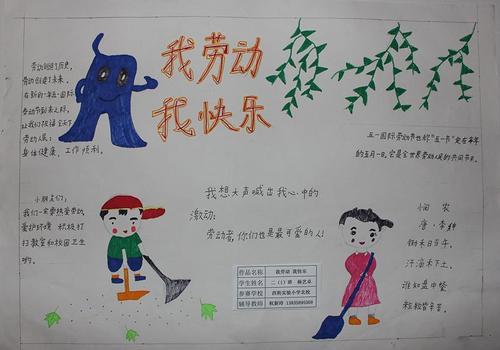 我劳动
我快乐
劳动创造了历史,
劳动创造了未来。
在新的一年五一国际
劳动节到来之际,
让我们祝福全天下
劳动人民:
身体健康、工作顺利。
五一国际劳动节也称"五一节"定在每年
的五月一日。它是全世界劳动人民的共同节日。
小朋友们:
我们一定要热爱劳动
爱护环境 积极打
扫教室和校园卫生
哟。
我想大声喊出我心中的
激动:
劳动者,你们也是最可爱的人!
悯 农
唐·李绅
锄禾日当午,
汗滴禾下土。
谁知盘中餐
粒粒皆辛苦。
作品名称 我劳动 我快乐
学生姓名 二(1)班 杨艺卓
参赛学校 实验小学北校
辅导教师